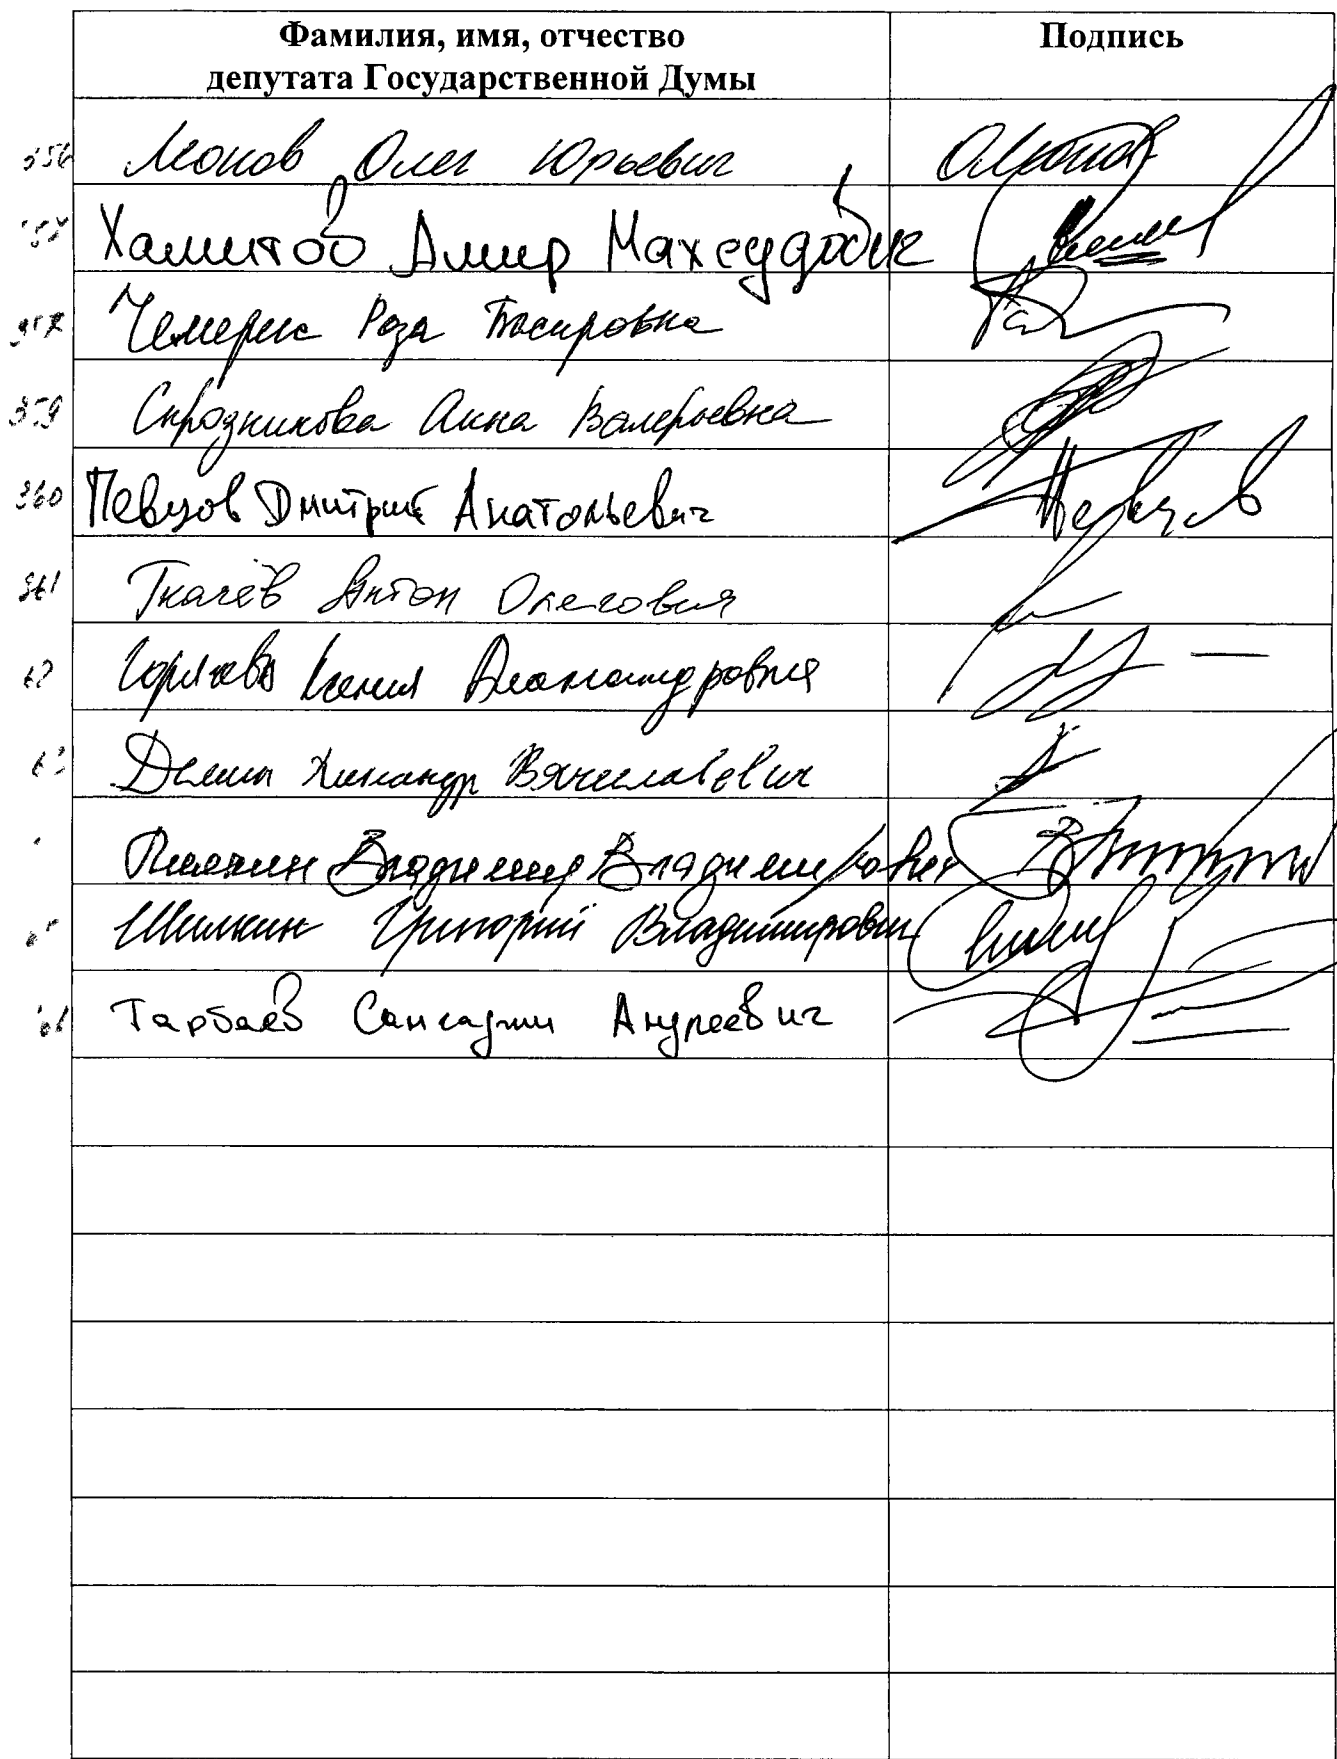 Фамилия, имя, отчество
депутата Государственной Думы
Подпись
356 Леонов Олег Юрьевич
357 Хамитов Амир Махсудович
358 Чемерис Роза Басировна
359 Скрозникова Анна Валерьевна
360 Певцов Дмитрий Анатольевич Певцов
361 Ткачёв Антон Олегович
Горячева Ксения Александровна
Демин Александр Вячеславович
Плякин Владимир Владимирович
Шилкин Григорий Владимирович
Тарбаев Сангаджи Андреевич